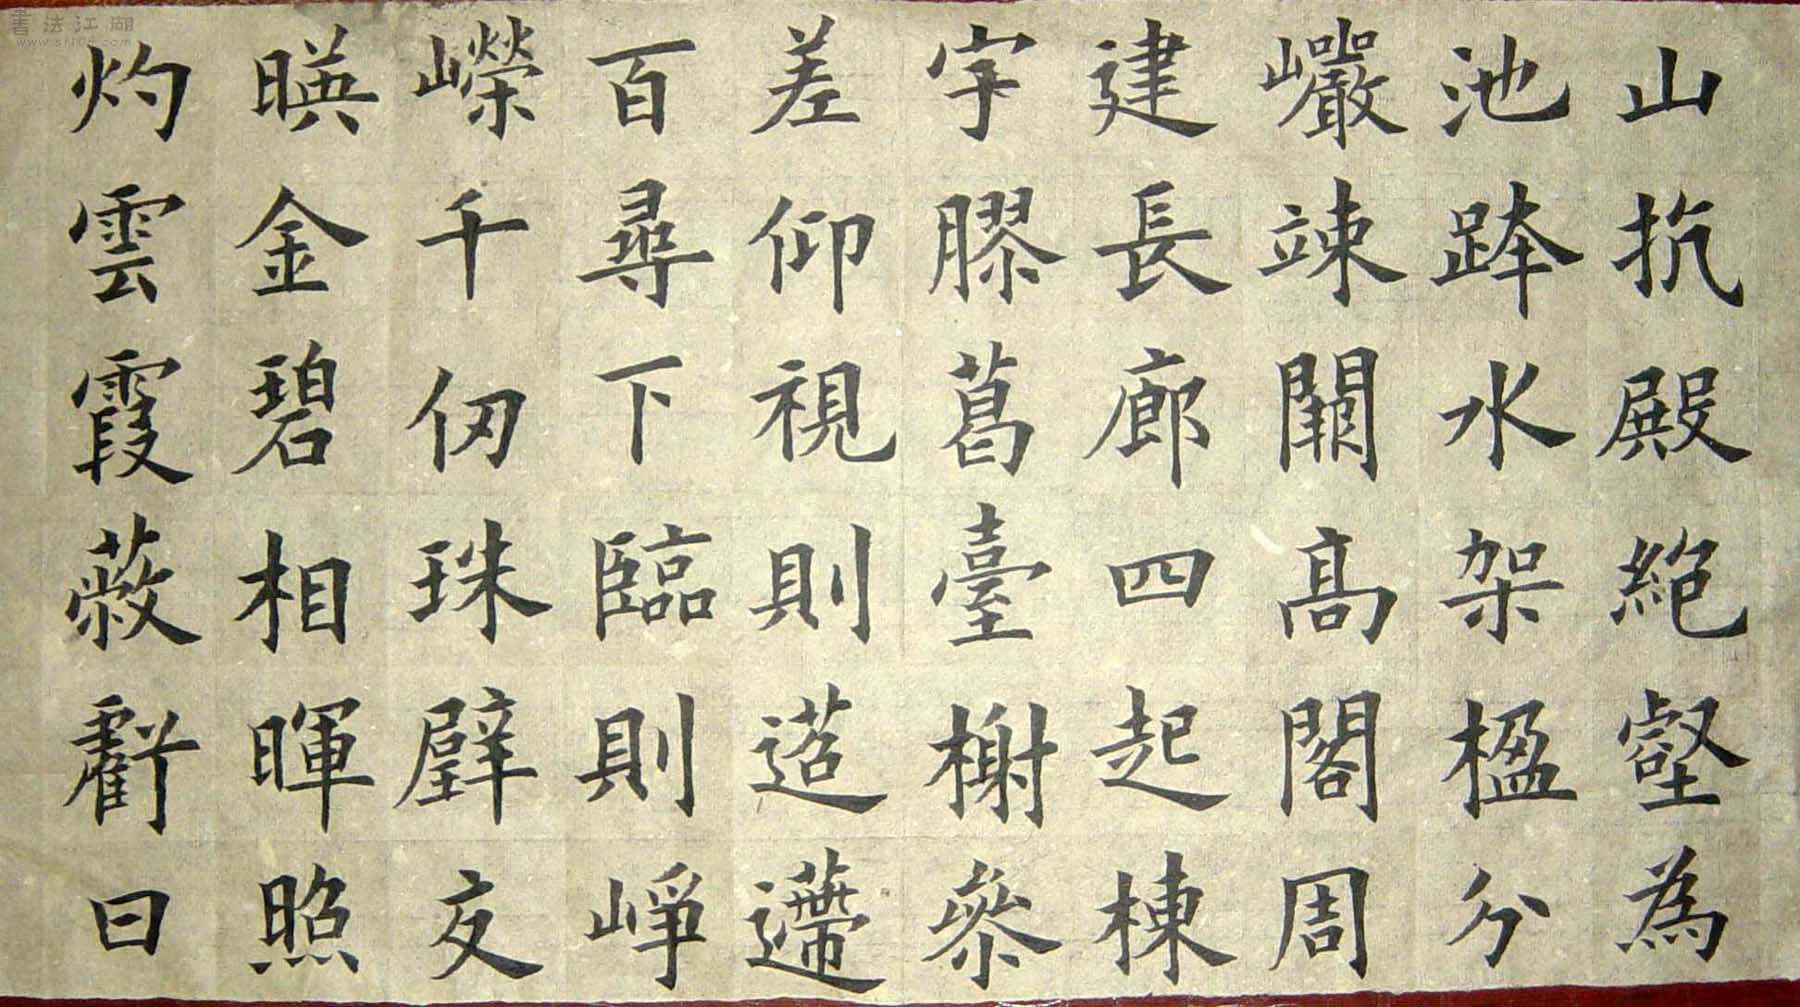 山抗殿絶壑為
池跨水架楹分
巖竦闕高閣周
建長廊四起棟
宇膠葛臺榭參
差仰視則迢遰
百尋下臨則崢
嶸千仞珠璧交
暎金碧相暉照
灼雲霞蔽虧日
書法江湖